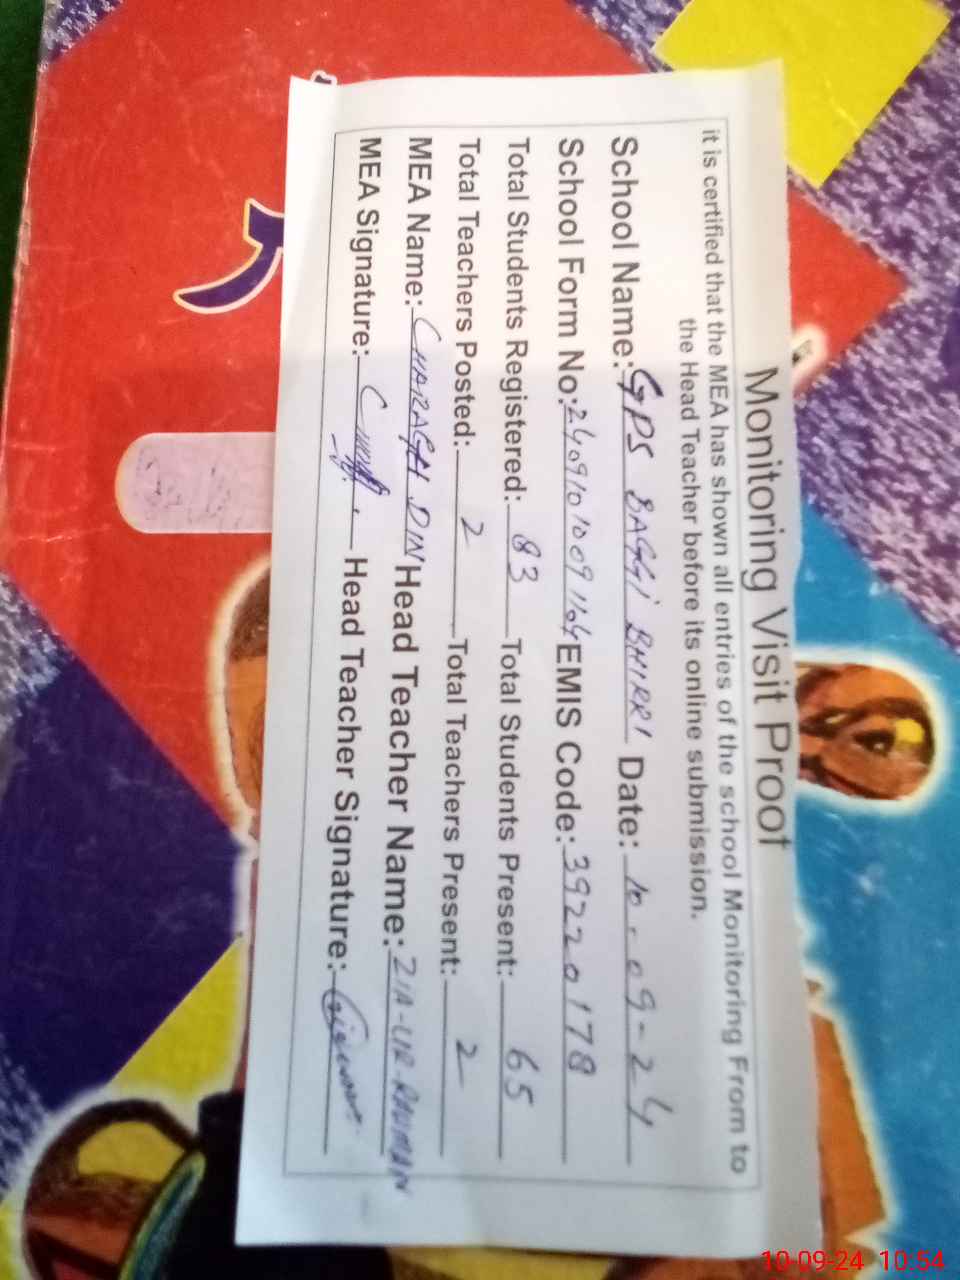 Monitoring Visit Proof
it is certified that the MEA has shown all entries of the school Monitoring From to
the Head Teacher before its online submission.
School Name: GPS BAGGI BHIRRI Date: 10-09-24
School Form No: 2409101009164 EMIS Code: 39220178
Total Students Registered: 83 Total Students Present: 65
Total Teachers Posted: 2 Total Teachers Present: 2
MEA Name: CHARAGH DIN Head Teacher Name: ZIA-UR-RAHMAN
MEA Signature: Head Teacher Signature:
10-09-24 10:54